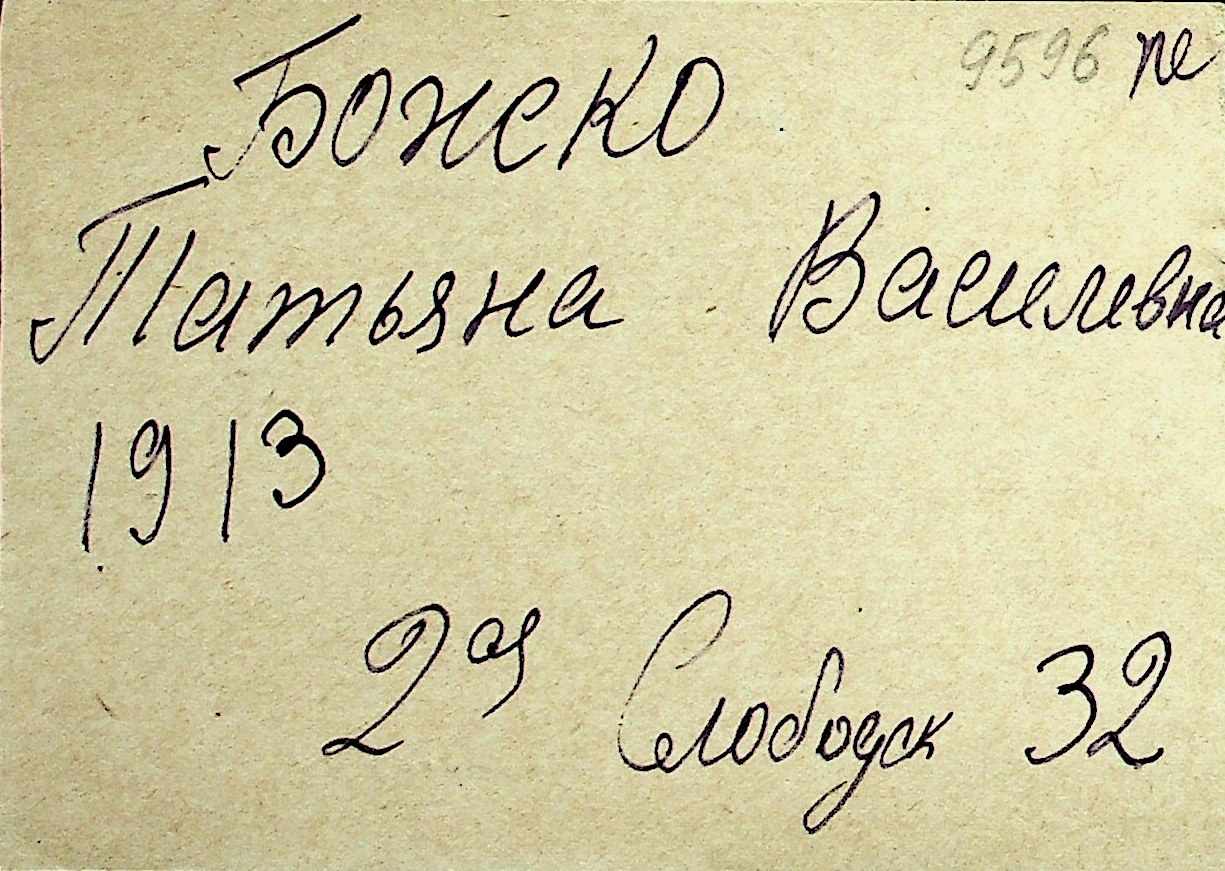 9596 пе
Божско
Татьяна Василивна
1913
2ая Слободск 32